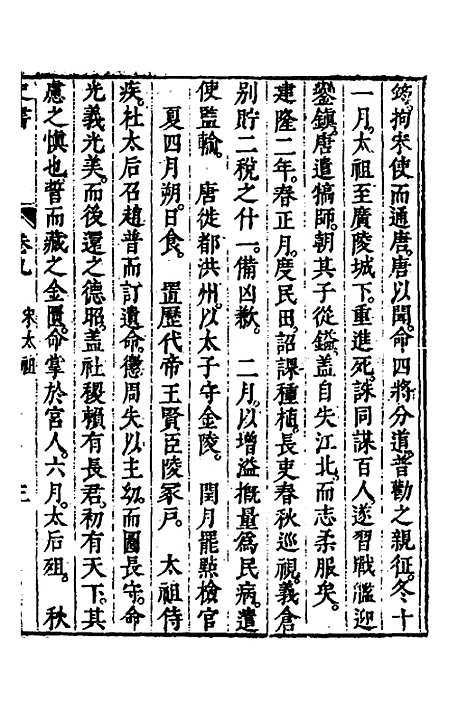 筠拘宋使而通唐。唐以聞。命四將分道。普勸之親征。冬十
一月。太祖至廣陵城下。重進死。誅同謀百人。遂習戰艦迎
鑾鎮。唐遣犒師。朝其子從鎰。蓋自失江北。而志柔服矣。
建隆二年。春正月。度民田。詔課種植。長吏春秋巡視。義倉
別貯二稅之什一。備凶歉。 二月。以增溢概量爲民病。遣
使監輸。 唐徙都洪州。以太子守金陵。 閏月罷黜檢官
夏四月朔。日食。 置歷代帝王賢臣陵冢戶。 太祖侍
疾。杜太后召趙普而訂遺命。懲周失以主幼。而圖長守。命
光義光美。而後還之德昭。蓋社稷賴有長君。初有天下。其
慮之愼也。誓而藏之金匱。命掌於宮人。六月。太后殂。 秋
史書 卷九 宋太祖 三